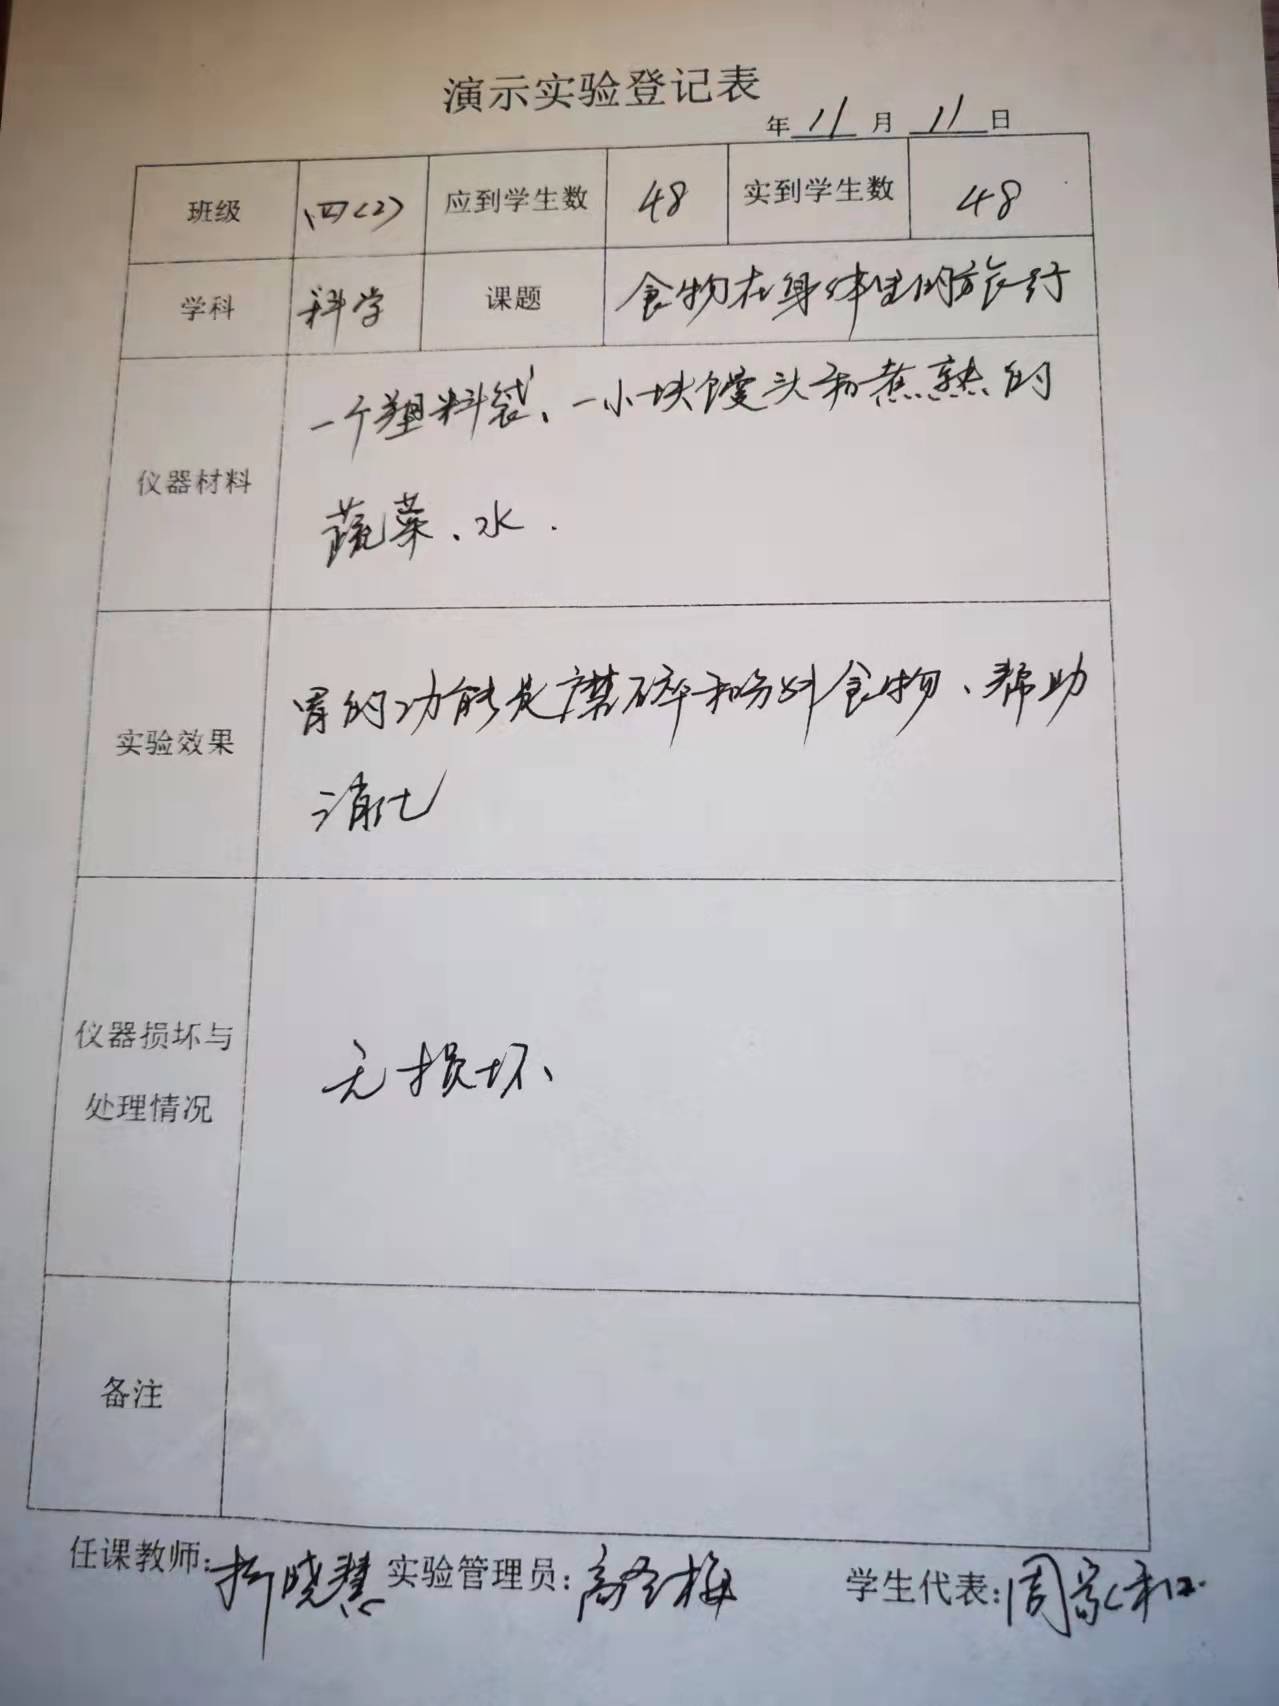 演示实验登记表
年 11 月 11 日
班级 四(2) 应到学生数 48 实到学生数 48
学科 科学 课题 食物在身体里的旅行
仪器材料 一个塑料袋、一小块馒头和煮熟的
蔬菜、水.
实验效果 胃的功能是磨碎和分解食物、帮助
消化
仪器损坏与
处理情况
无损坏、
备注
任课教师: 晓慧 实验管理员: 高 梅 学生代表: 周家和